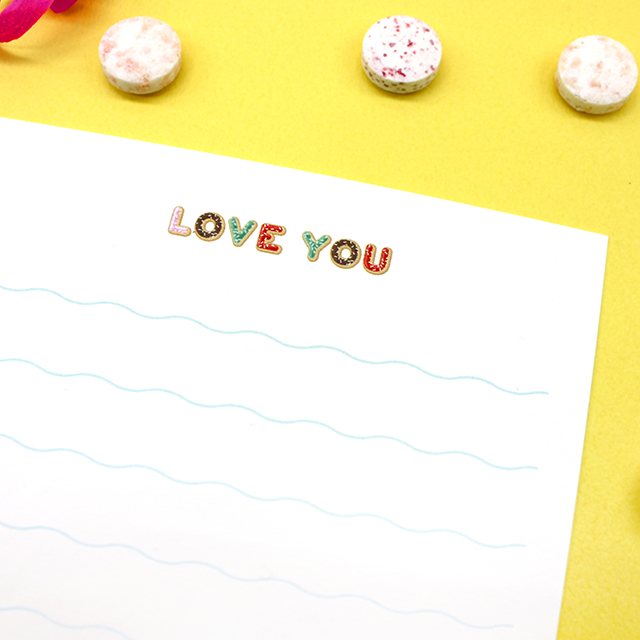 LOVE YOU